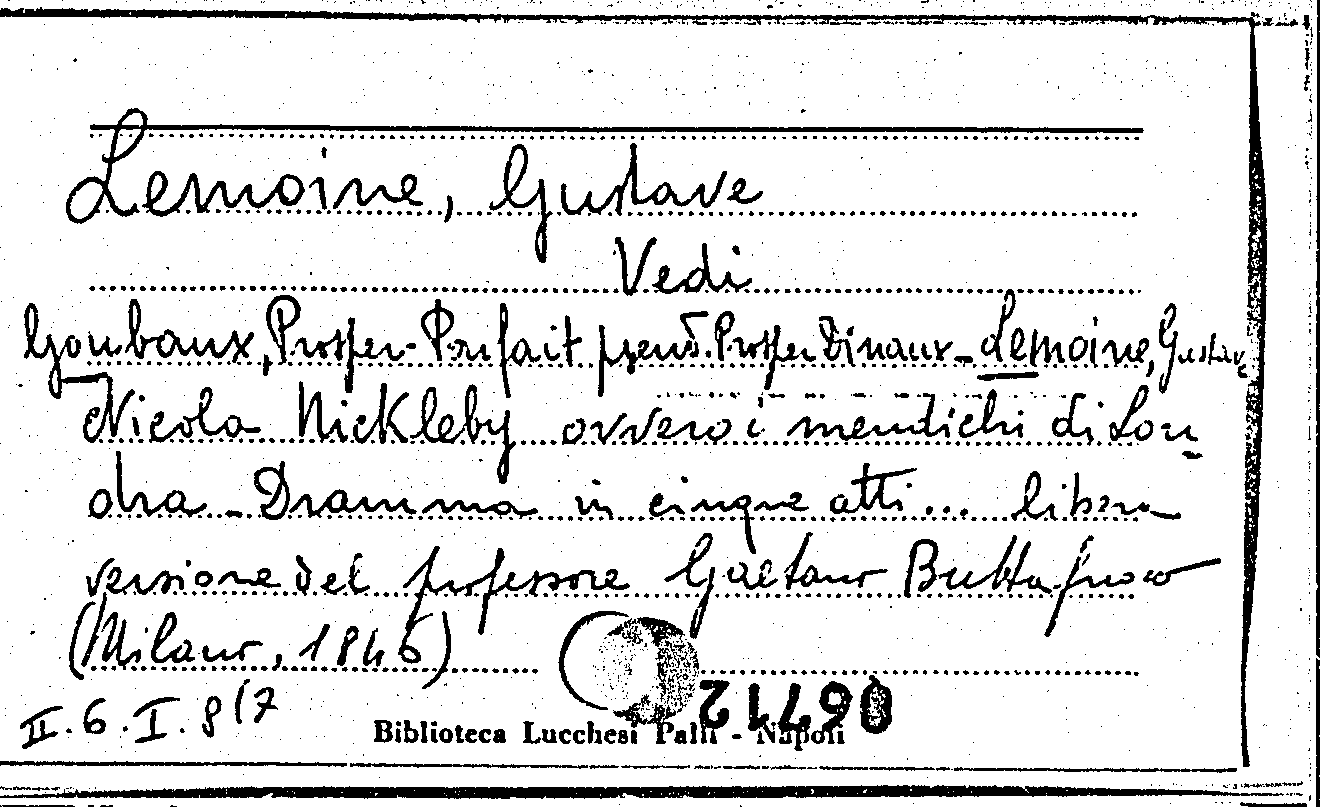 Lemoine, Gustave
Vedi
Goubaux, Prosper-Parfait pseud. Prosper Dinaux - Lemoine, Gustave
Nicola Nickleby ovvero i mendichi di Lon-
dra - Dramma in cinque atti... libera
versione del professore Gaetano Buttafuoco
(Milano, 1846)
II.6.I.8(7
Biblioteca Lucchesi Palli - Napoli